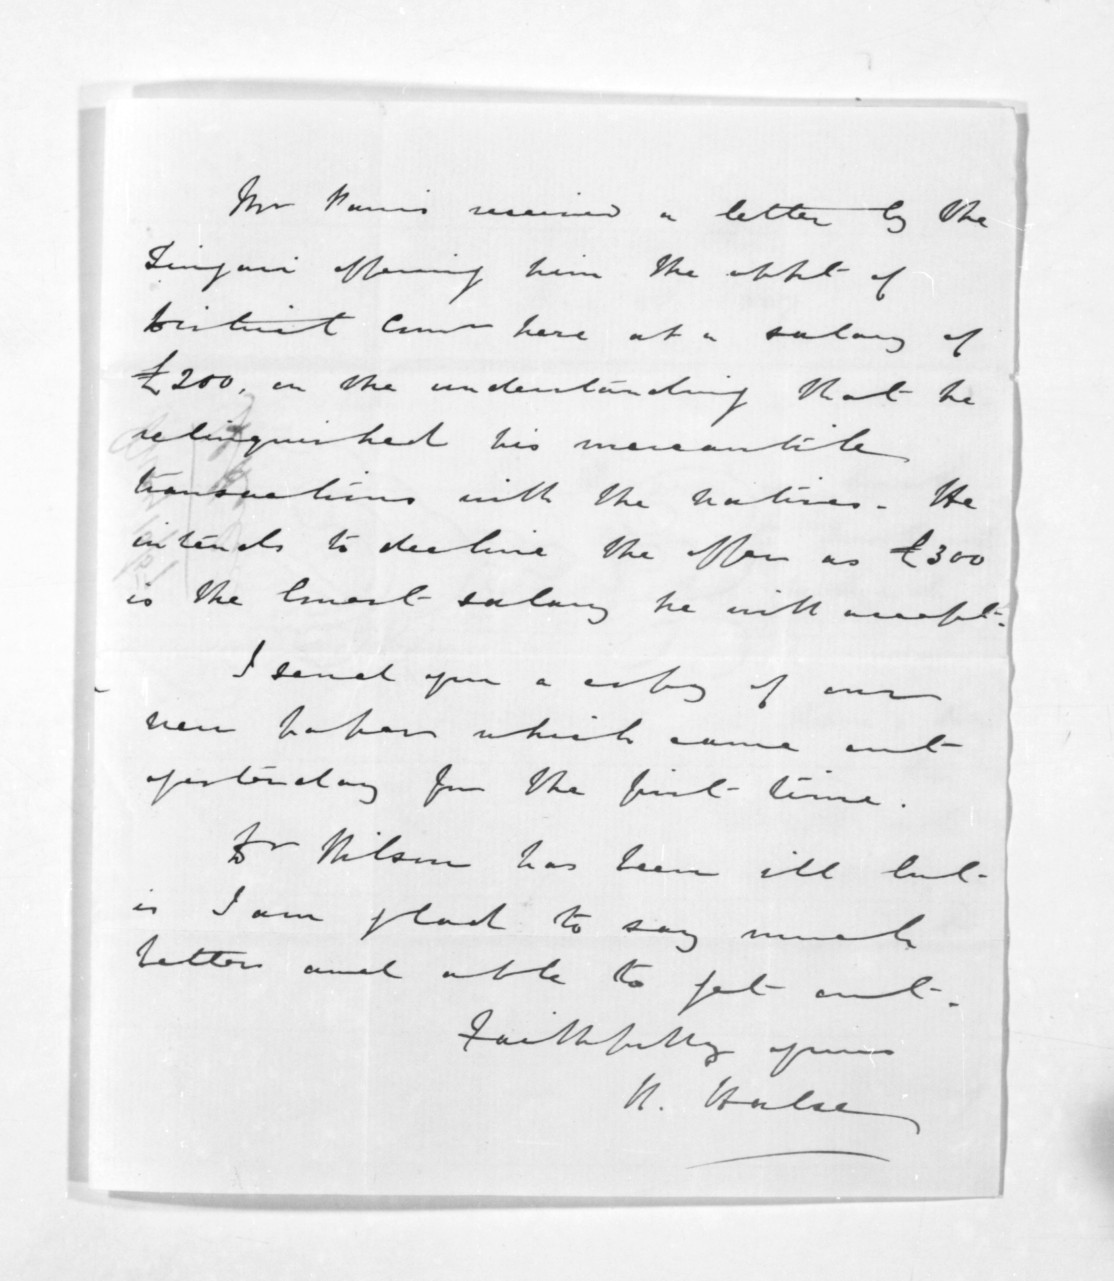 Mr Parris received a letter by the
Singari offering him the appt of
District Comr here at a salary of
£200. on the understanding that he
relinquished his mercantile
transactions with the natives. He
intends to decline the offer as £300
is the lowest salary he will accept.
I send you a copy of our
new paper which came out
yesterday for the first time.
Dr Wilson has been ill but
is I am glad to say much
better and able to get out.
Faithfully yours
H. Halse